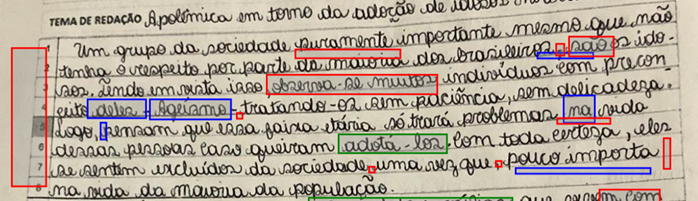 TEMA DE REDAÇÃO A polêmica em torno da adoção de idosos
1 Um grupo da sociedade puramente importante mesmo que não
2 tenha o respeito por parte da maioria dos brasileiros, são os ido-
3 sos. Tendo em vista isso, observa-se muitos indivíduos com precon
4 ceito deles. Ageísmo, tratando-os sem paciência, sem delicadeza.
5 Logo, pensam que essa faixa etária só trará problemas na vida
6 dessas pessoas caso queiram adotá-los. Com toda certeza, eles
7 se sentem excluídos da sociedade, uma vez que pouco importa
8 na vida da maioria da população.
que com